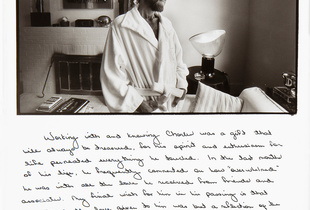 Working with and knowing Charles was a gift that
will always be treasured, for his spirit and enthusiasm for
life permeated everything he touched. In the last months
of his life, he frequently commented on how "overwhelmed"
he was with all the love he received from friends and
associates. My final wish for him in his passing is that
the love given to him was but a reflection of the